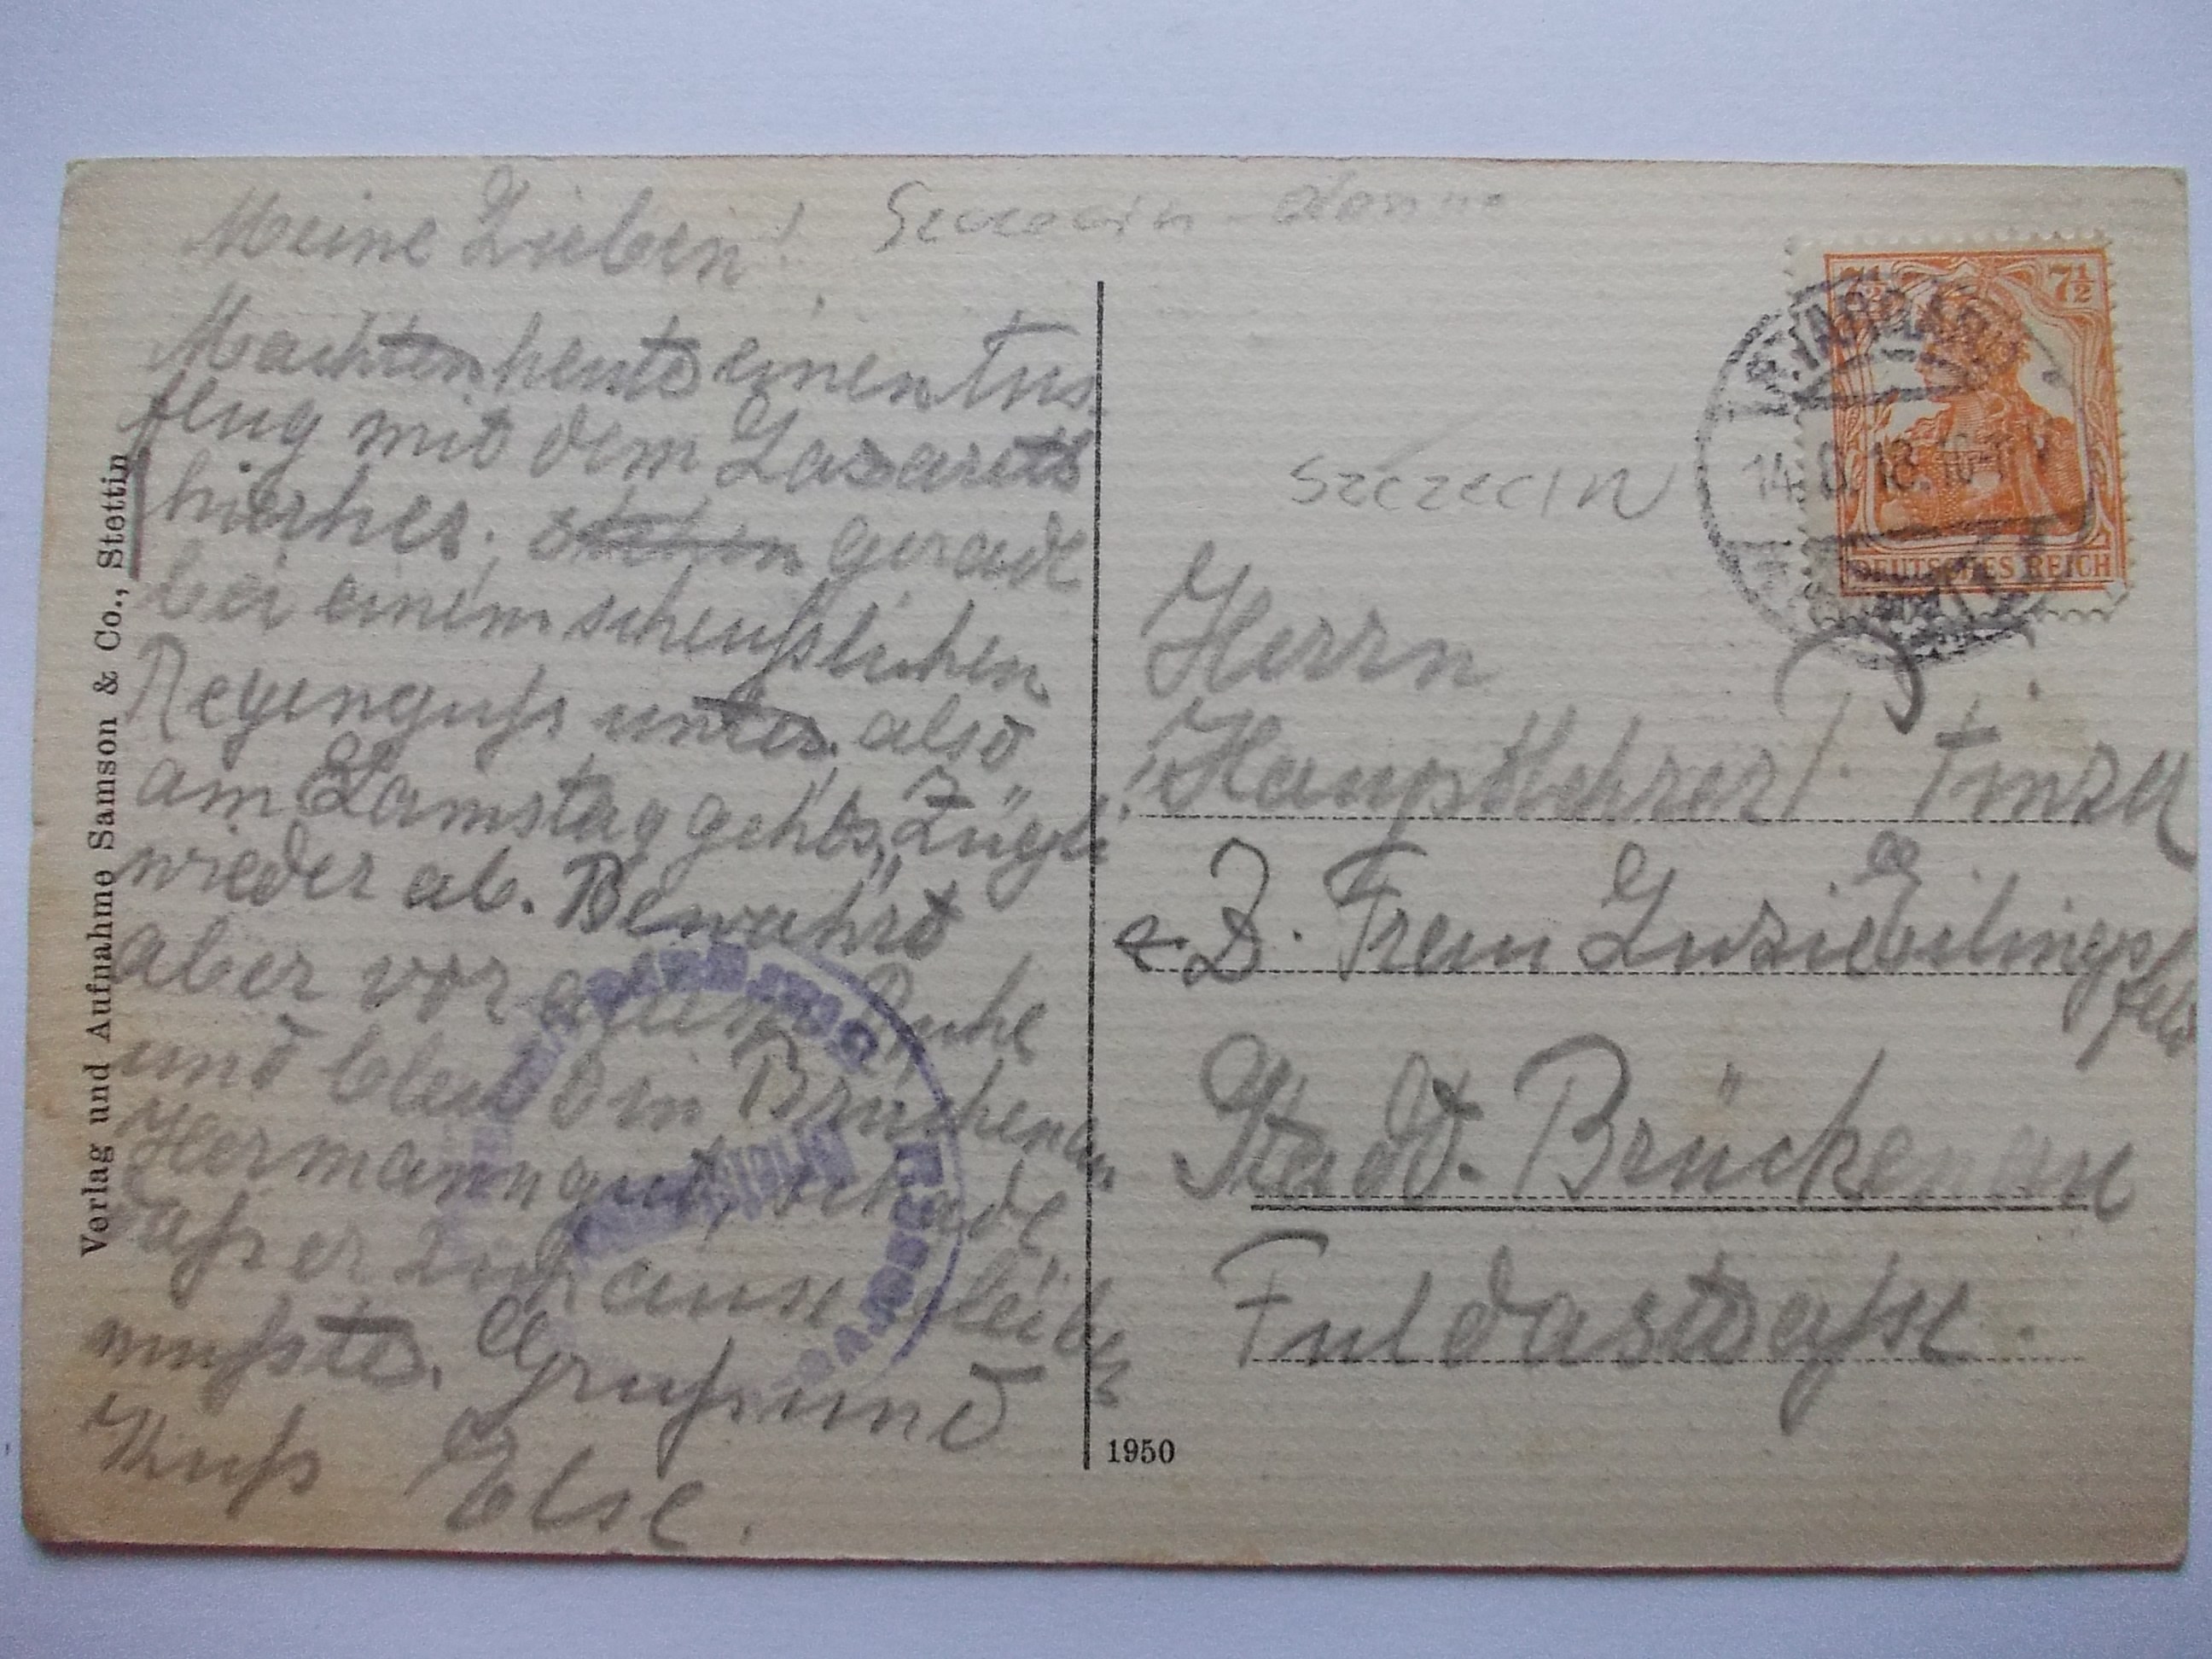 Meine Lieben!
Szczecin
Machten heute einen Aus-
flug mit dem Lazarett
hierher. stehen gerade
bei einem scheußlichen
Regenguß unter. also
am Samstag gehts "Zügli"
wieder ab. Bewahrt
aber vor allem Ruhe
und bleibt in Brückenau
Hermann gut, schade,
daß er zuhause bleiben
mußte. Gruß und
Kuß Else.
Verlag und Aufnahme Samson & Co., Stettin
1950
7½
DEUTSCHES REICH
14.8.18.
SZCZECIN
Herrn
Hauptlehrer
z. Z. Frau Luzie Eilingsfeld
Stadt. Brückenau
Fuldastraße.